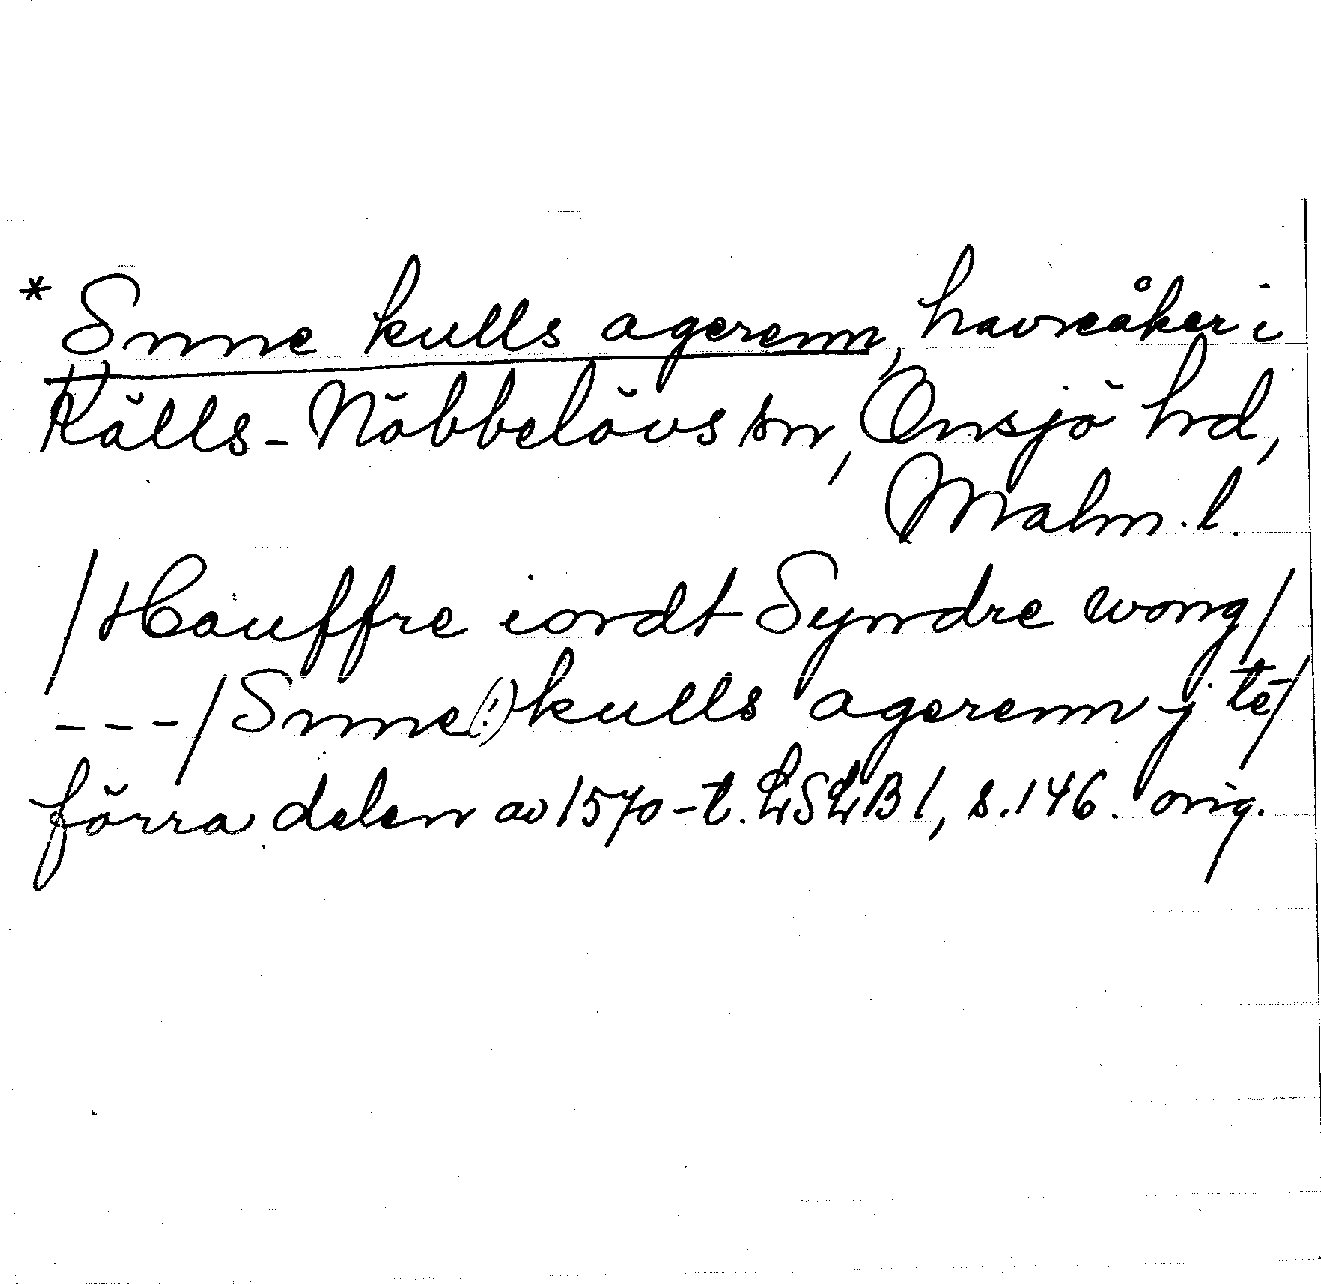 * Snne kulls agerenn, havreåker i
Källs-Nöbbelövs sn, Onsjö hd,
Malm. l.
/Hauffre iordt Syndre wong/
---/Snne(!) kulls agerenn j tē/
förra delen av 1570-t. LSLB 1, s. 146. orig.